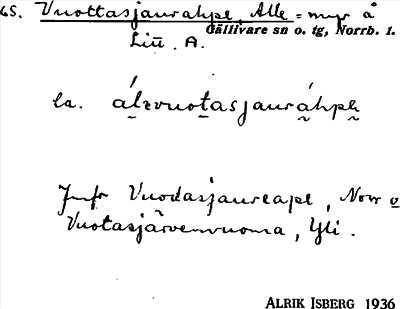 65. Vuottasjaurahpe, Alle = myr å
Gällivare sn o. tg, Norrb. l.
Lill. A.
la. álzvuotasjauráhpẹ
Jmfr Vuodasjaureape, Norr o
Vuotasjärvenvuoma, Yli.
ALRIK ISBERG 1936